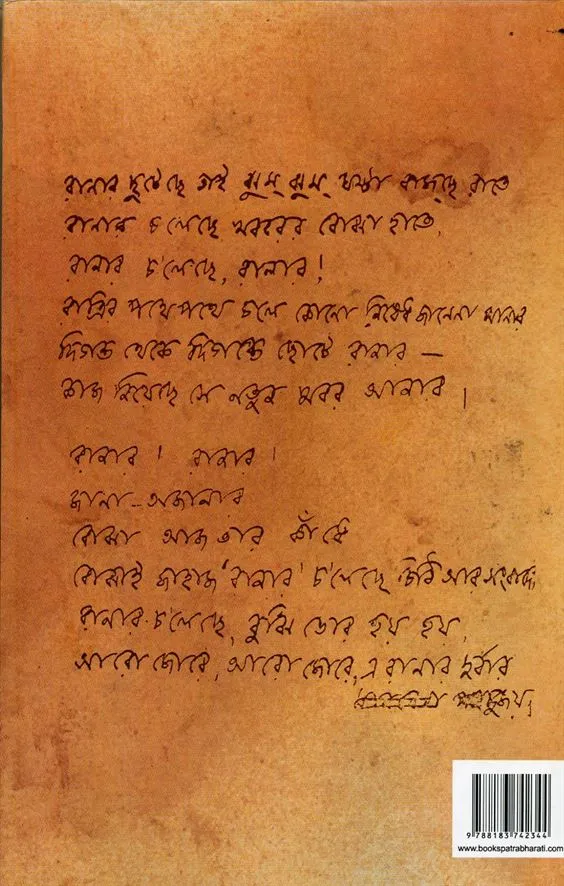 রানার ছুটেছে তাই ঝুম্ ঝুম্ ঘণ্টা বাজ্‌ছে রাতে
রানার চ'লেছে খবরের বোঝা হাতে,
রানার চ'লেছে, রানার!
রাত্রির পথে পথে চলে কোনো নিষেধ জানেনা মানার
দিগন্ত থেকে দিগন্তে ছোটে রানার —
কাজ নিয়েছে সে নতুন খবর আনার।
রানার! রানার!
জানা-অজানার
বোঝা আজ তার কাঁধে
বোঝাই জাহাজ 'রানার' চ'লেছে চিঠি আর সংবাদে;
রানার চ'লেছে, বুঝি ভোর হয় হয়,
আরো জোরে, আরো জোরে, এ রানার দুর্বার
দুর্জয়।
9 788183 742344
www.bookspatrabharati.com